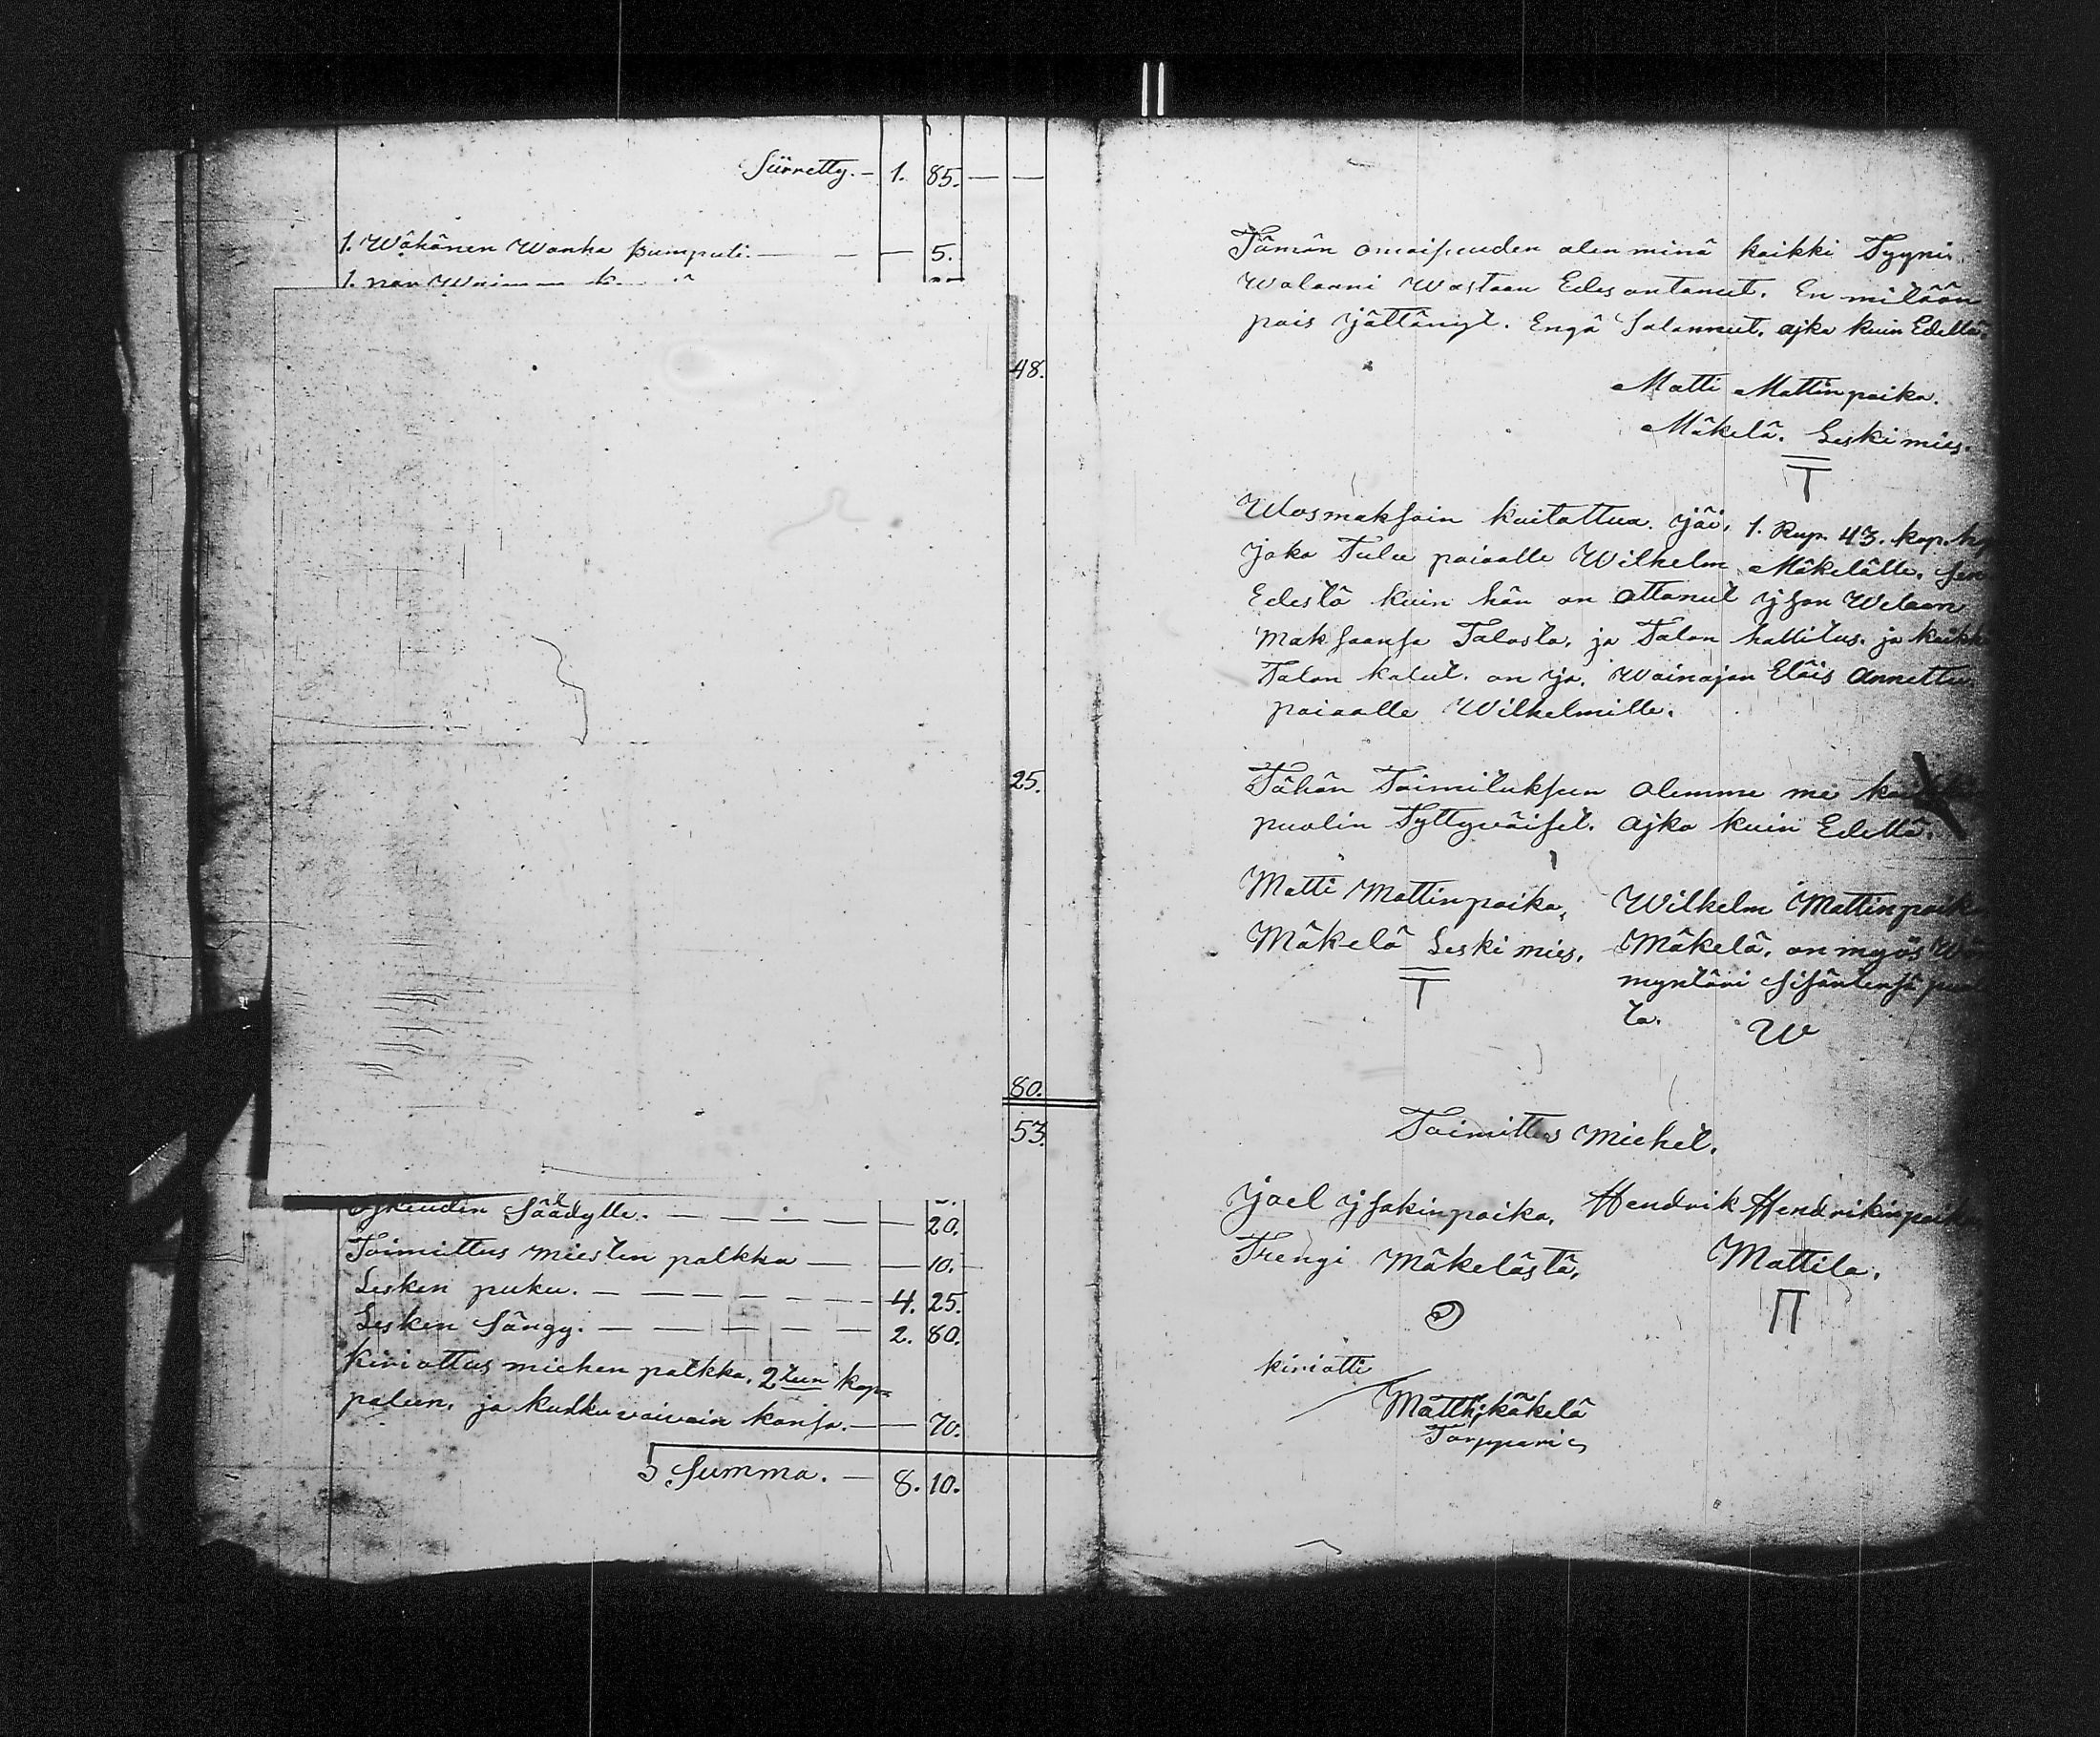 Siirretty. — 1. 85. — —
1. Wähänen Wanha pumpuli. — — — 5.
48.
25.
80.
53.
Säädylle. — — — — — — 20.
Toimittus miesten palkka — — 10. —
Lesken puku. — — — — — — 4. 25.
Lesken Sängy. — — — — — 2. 80.
Kiriottus miehen palkka, 2 tuun kap-
paleen, ja kulku vaivain kansa. — — 70.
Summa. — 8. 10.
Tämän omaisuuden olen minä kaikki Tyyni
Walanni Wastaan Edesantanut. En mitään
pois jättänyt. Engä Salannut. ajka kuin Edellä.
Matti Mattinpoika.
Mäkelä. Leski mies.
T
Ulosmaksoin kuitattua. jäi, 1. Rup. 43. kop.
joka Tulee poiaalle Wilhelm Mäkelälle, sen
Edestä kuin hän on ottanut ison Welaan
maksaansa Talosta, ja Talon hallitus. ja kaikki
Talon kalut. on jo. Wainajan Eläis annettu.
poiaalle Wilhelmille.
Tähän Toimitukseen olemme me
puolin Tyttyväiset. ajka kuin Edellä.
Matti Mattinpoika, Wilhelm Mattinpoika
Mäkelä Leski mies. Mäkelä. on myös
T
myntäri sisäntensä
ta. W
Toimittus Miehet.
Joel Isakinpoika. Hendrik Hendrikinpoika
Trengi Mäkelästä. Mattila.
kiriotti
Matthi käkelä
Torppari